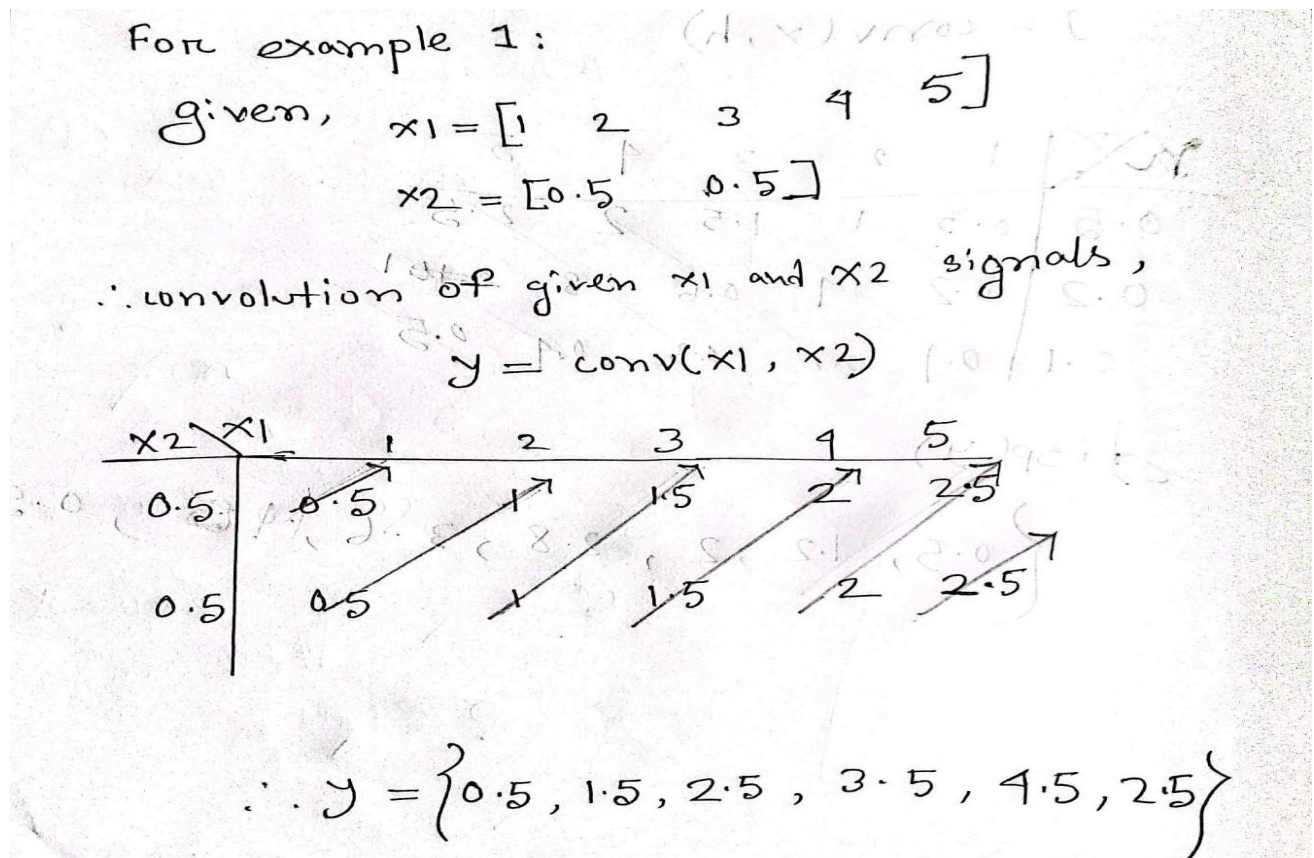 For example 1:
given, x1 = [1 2 3 4 5]
x2 = [0.5 0.5]
∴ convolution of given x1 and x2 signals,
y = conv(x1, x2)
x2 x1 1 2 3 4 5
0.5 0.5 1 1.5 2 2.5
0.5 0.5 1 1.5 2 2.5
∴ y = {0.5, 1.5, 2.5, 3.5, 4.5, 2.5}